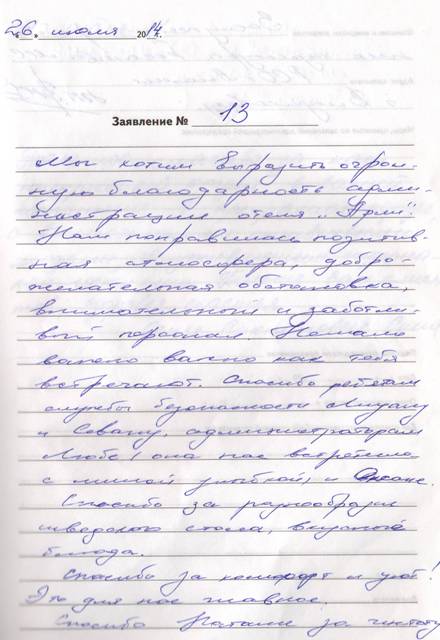 26. июля 2014.
Заявление № 13
Мы хотим выразить огром-
ную благодарность адми-
нистрации отеля „Арли".
Нам понравилась позитив-
ная атмосфера, добро-
желательная обстановка,
внимательный и заботли-
вый персонал. Немало
важно важно как тебя
встречают. Спасибо ребятам
службы безопасности
и Севаку, администраторам
Любе, она нас встретила
с милой улыбкой, и Оксане.
Спасибо за разнообразие
шведского стола, вкусные
блюда.
Спасибо за комфорт и уют!
Это для нас главное.
Спасибо Натали за чистоту